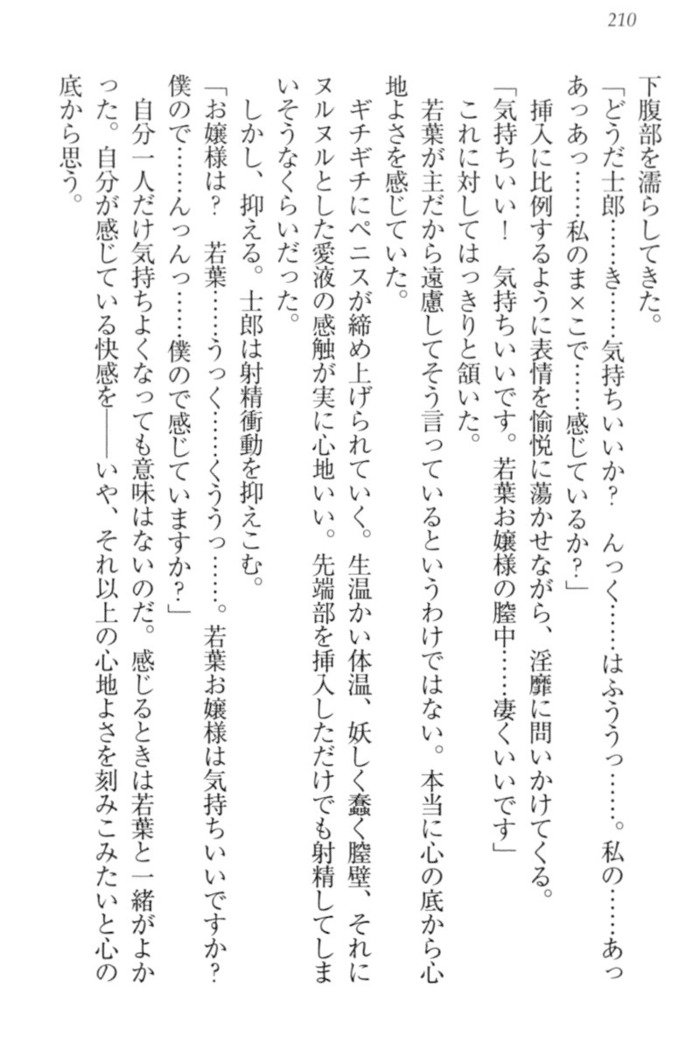 210
下腹部を濡らしてきた。
「どうだ士郎……き……気持ちいいか？　んっく……はふううっ……。私の……あっ
あっあっ……私のま×こで……感じているか？」
挿入に比例するように表情を愉悦に蕩かせながら、淫靡に問いかけてくる。
「気持ちいい！　気持ちいいです。若葉お嬢様の膣中……凄くいいです」
これに対してはっきりと頷いた。
若葉が主だから遠慮してそう言っているというわけではない。本当に心の底から心
地よさを感じていた。
ギチギチにペニスが締め上げられていく。生温かい体温、妖しく蠢く膣壁、それに
ヌルヌルとした愛液の感触が実に心地いい。先端部を挿入しただけでも射精してしま
いそうなくらいだった。
しかし、抑える。士郎は射精衝動を抑えこむ。
「お嬢様は？　若葉……うっく……くううっ……。若葉お嬢様は気持ちいいですか？
僕ので……んっんっ……僕ので感じていますか？」
自分一人だけ気持ちよくなっても意味はないのだ。感じるときは若葉と一緒がよか
った。自分が感じている快感を――いや、それ以上の心地よさを刻みこみたいと心の
底から思う。